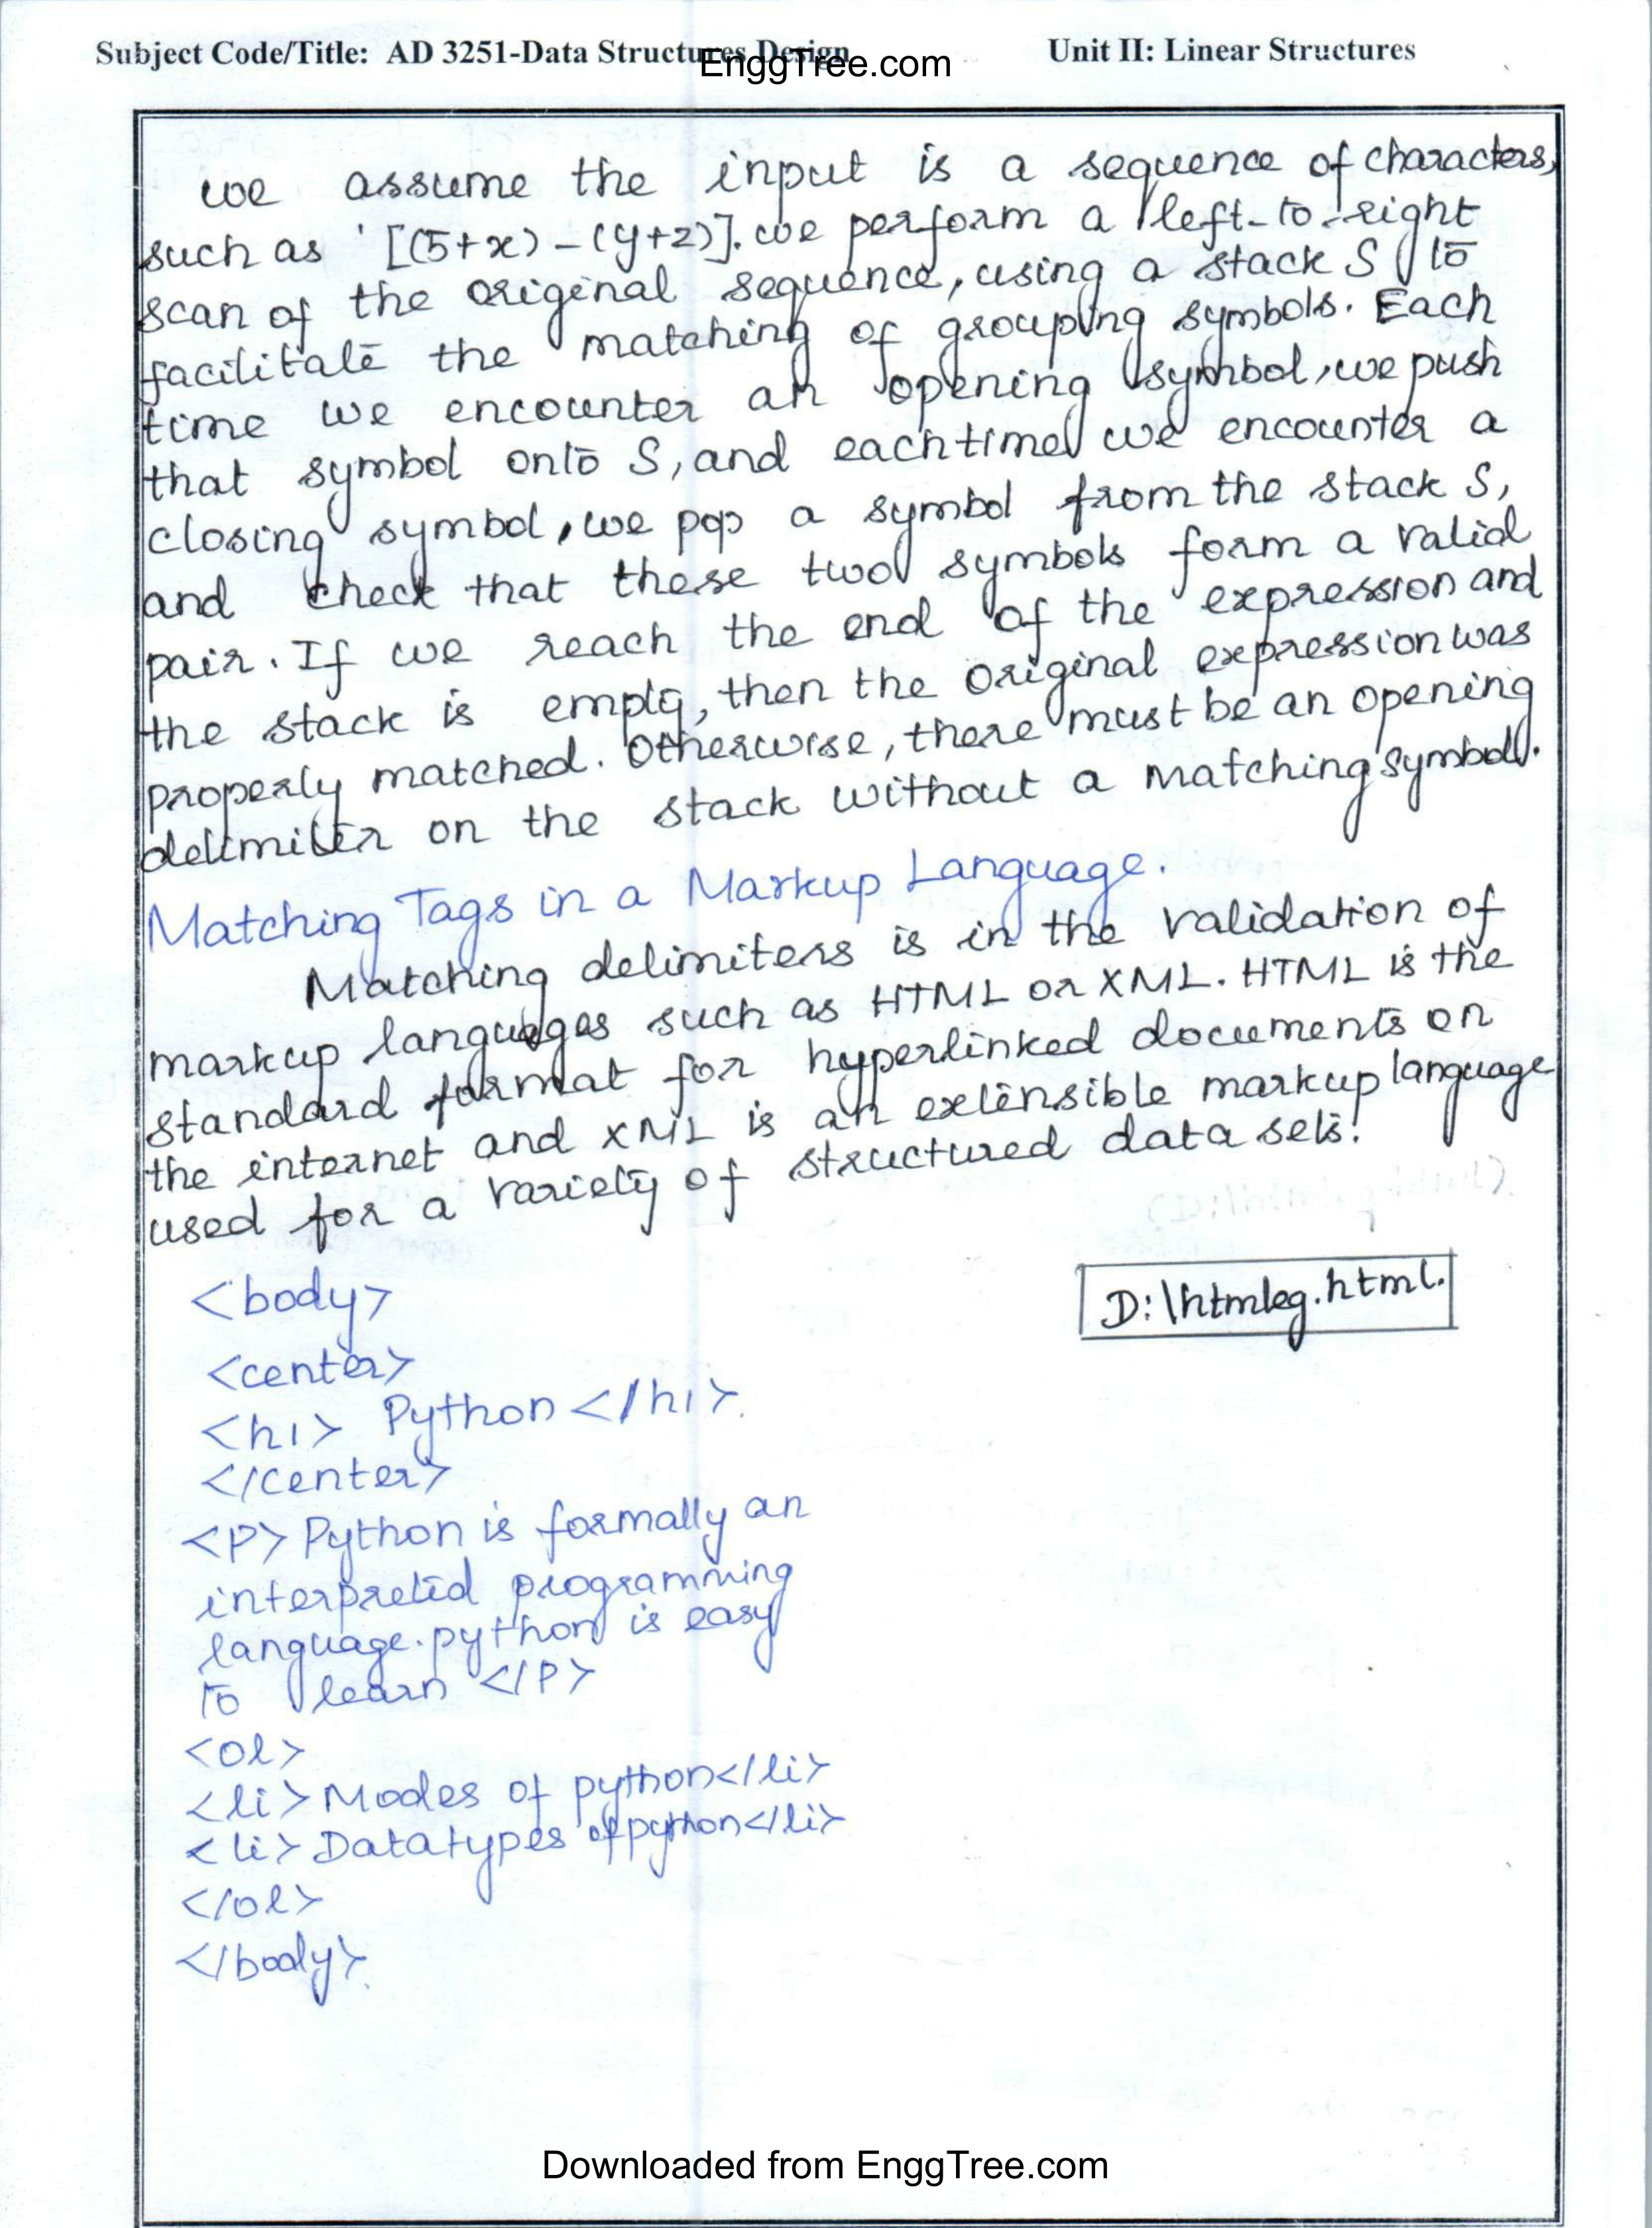 Subject Code/Title: AD 3251-Data Structures Design
EnggTree.com
Unit II: Linear Structures
we assume the input is a sequence of characters,
such as '[(5+x)-(y+z)]. we perform a left-to-right
scan of the original sequence, using a stack S to
facilitate the matching of grouping symbols. Each
time we encounter an opening symbol, we push
that symbol onto S, and each time we encounter a
closing symbol, we pop a symbol from the stack S,
and check that these two symbols form a valid
pair. If we reach the end of the expression and
the stack is empty, then the original expression was
properly matched. Otherwise, there must be an opening
delimiter on the stack without a matching symbol.
Matching Tags in a Markup Language.
Matching delimiters is in the validation of
markup languages such as HTML or XML. HTML is the
standard format for hyperlinked documents on
the internet and XML is an extensible markup language
used for a variety of structured data sets.
<body>
D:\htmleg.html.
<center>
<h1> Python </h1>
</center>
<P> Python is formally an
interpreted programming
language. python is easy
to learn </P>
<ol>
<li> Modes of python</li>
<li> Datatypes of python</li>
</ol>
</body>
Downloaded from EnggTree.com